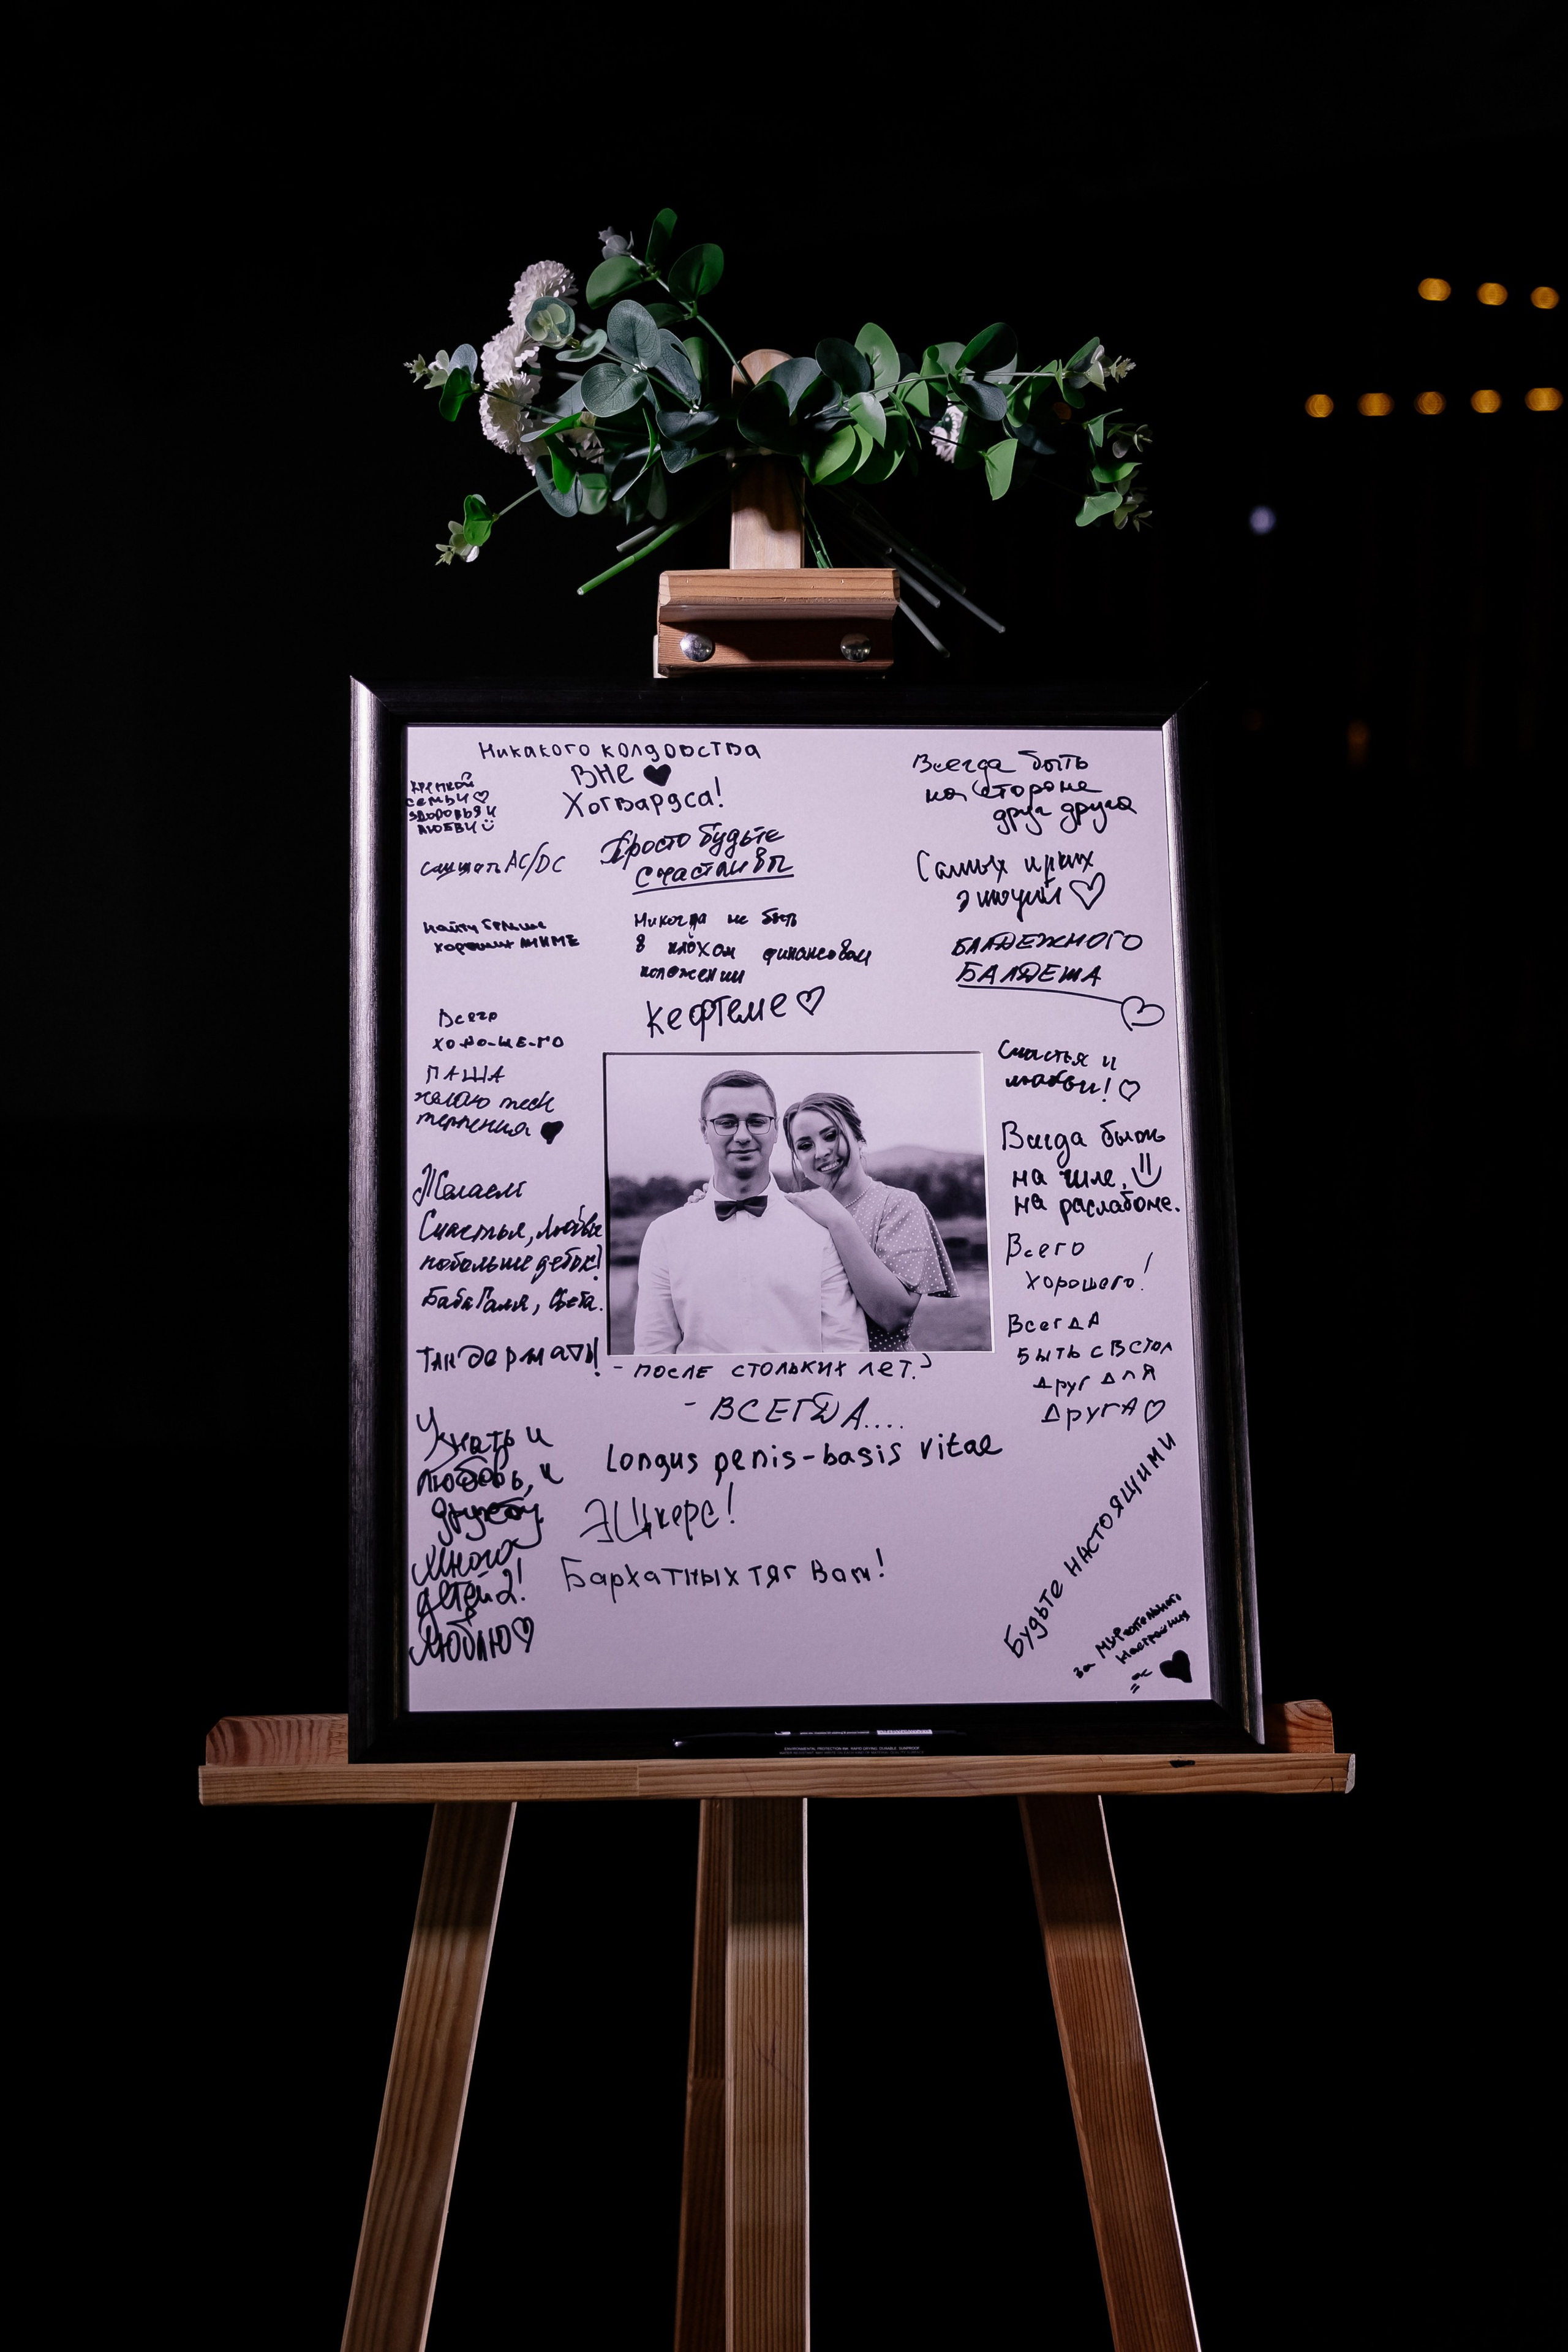 Никакого колдовства
вне
Хогвардса!
крепкой
семьи
здоровья и
любви
слушать AC/DC
Просто будьте
счастливы
найти больше
хороших АНИМЕ
Никогда не быть
в плохом финансовом
положении
Кефтеме
Всегда быть
на стороне
друг друга
Самых ярких
эмоций
БАЛДЕЖНОГО
БАЛДЕЖА
Всего
хо-ро-ше-го
ПАША
желаю тебе
терпения
Желаем
Счастья, любви
побольше деток!
Баба Галя, Света.
Тандермать!
Узнать и
любовь, и
дружбу.
Много
детей 2!
Люблю
Счастья и
любви!
Всегда быть
на чиле,
на расслабоне.
Всего
хорошего!
ВсегДА
быть с В стол
друг для
друга
- после стольких лет?
- ВСЕГДА....
Longus penis-basis vitae
ЭЩкере!
Бархатных тяг Вам!
Будьте настоящими
за МУРчательного
настроения